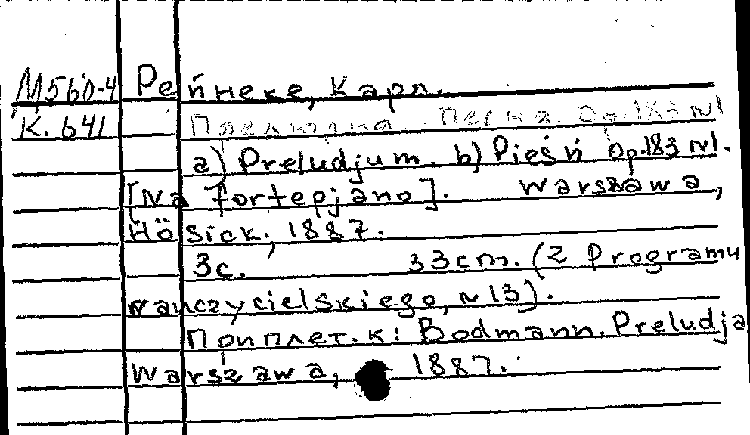 М560-4 Рейнеке, Карл.
К. 641 Прелюдиа. Песна. Op.183 №1
a) Preludjum. b) Pieśń Op.183 №1.
[Na fortepjano]. Warszawa,
Hösick, 1887.
3с. 33cm. (Z Programu
nauczycielskiego, №13).
Приплет. к: Bodmann. Preludja
Warszawa, 1887.